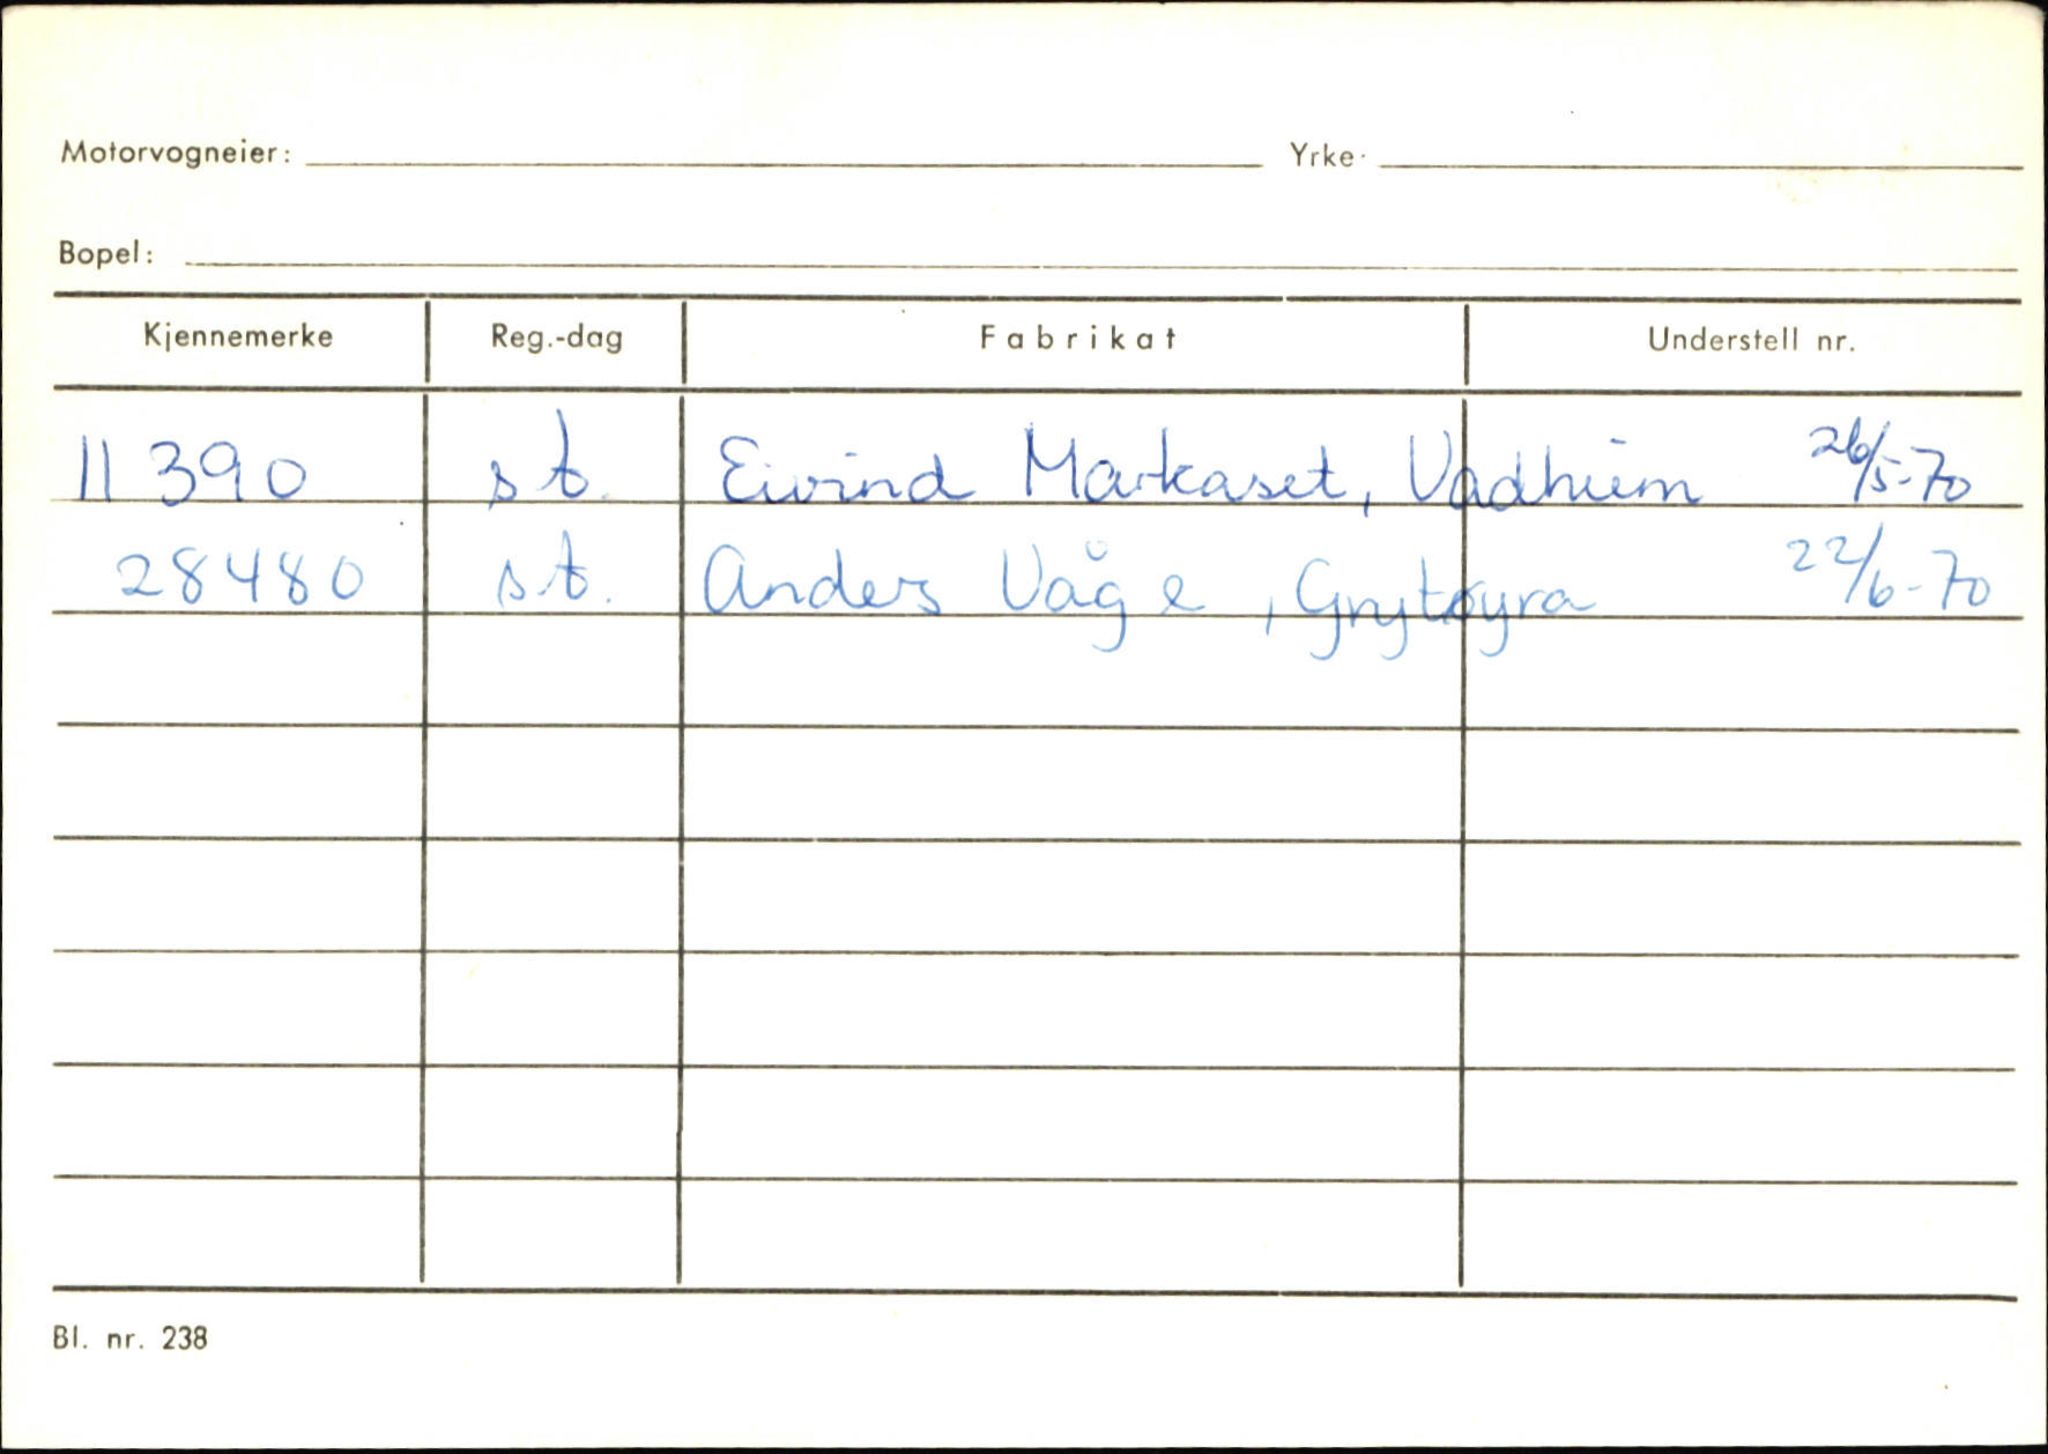 Motorvogneier: Yrke:
Bopel:
Kjennemerke Reg.-dag Fabrikat Understell nr.
11390 st. Eivind Markaset, Vadheim 26/5-70
28480 st. Anders Våge, Grytøyra 22/6-70
Bl. nr. 238